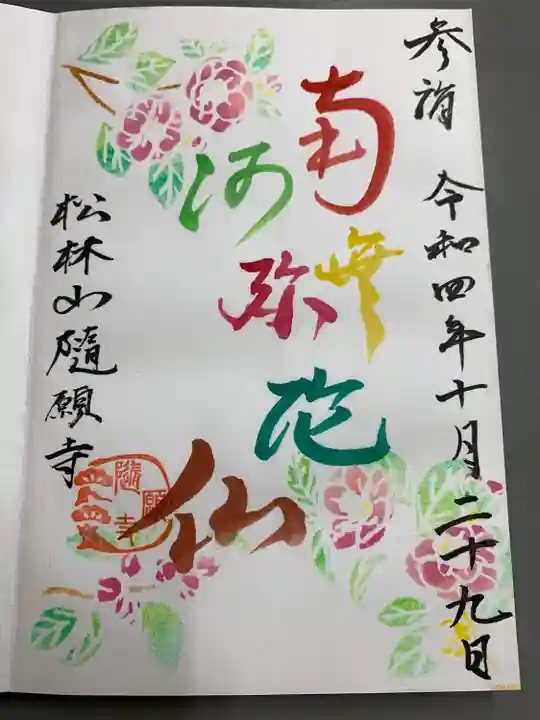 参詣 令和四年十月二十九日
南無
阿弥陀
仏
松林山隨願寺
隨願寺